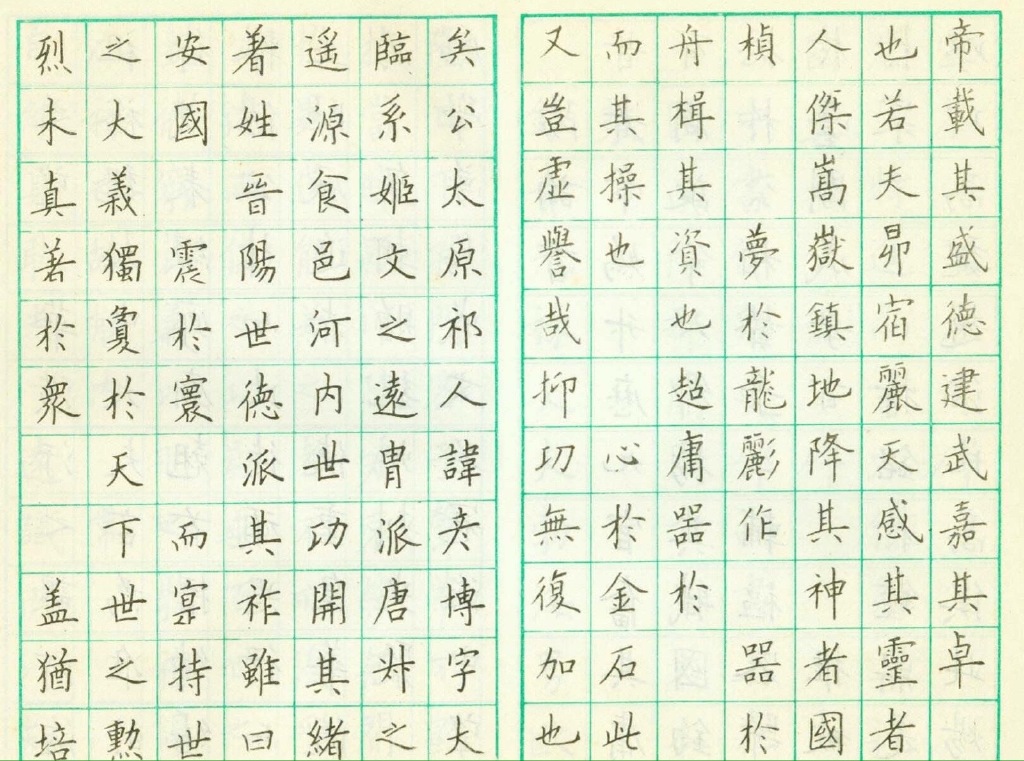 帝載其盛德建武嘉其卓
也若夫昴宿麗天感其靈者
人傑嵩嶽鎮地降其神者國
楨夢於龍彲作器於
舟楫其資也超庸器於
而其操也心於金石此
又豈虛譽哉抑功無復加也
矣公太原祁人諱彦博字大
臨系姬文之遠胄派唐叔之
遥源食邑河内世功開其緒
著姓晉陽世德派其祚雖曰
安國震於寰而寔持世
之大義獨敻於天下世之勲
烈未真著於衆蓋猶培